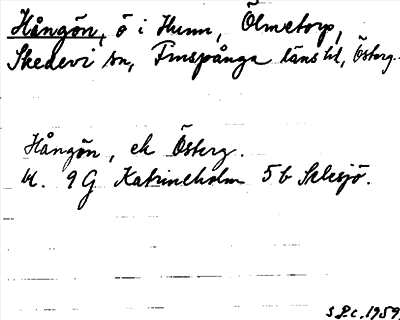 Hångön, ö i Hunn, Ölmetorp,
Skedevi sn, Finspånga läns hd, Österg.
Hångön, ek Österg.
bl. 9 G Katrineholm 5 b Selesjö.
1959